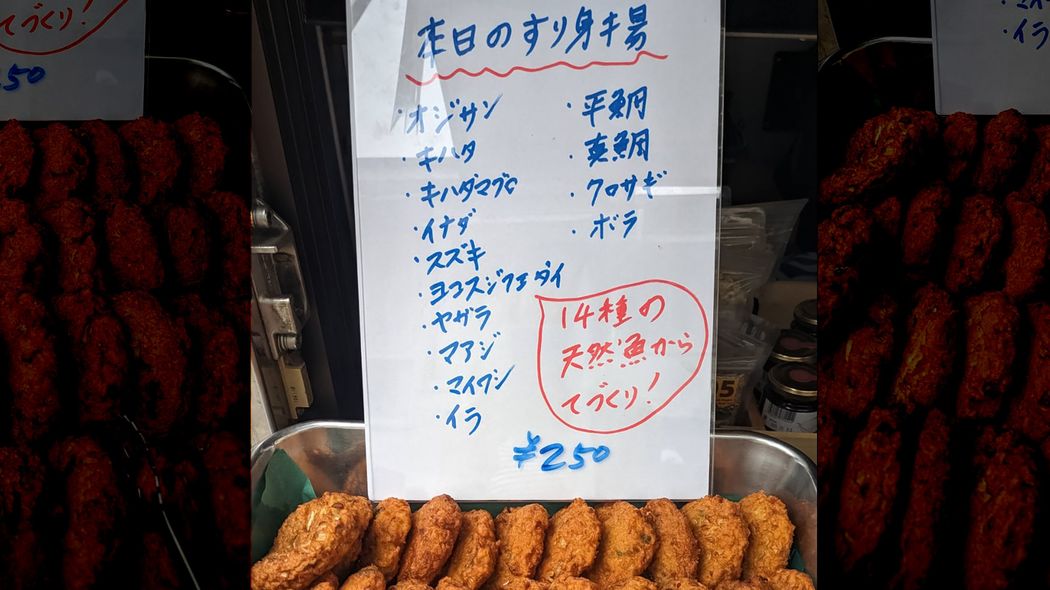 本日のすり身揚
・オジサン
・キハタ
・キハダマグロ
・イナダ
・スズキ
・ヨコスジフエダイ
・ヤガラ
・マアジ
・マイワシ
・イラ
・平鯛
・真鯛
・クロサギ
・ボラ
14種の
天然魚から
てづくり!
¥250
てづくり!
250
・イラ